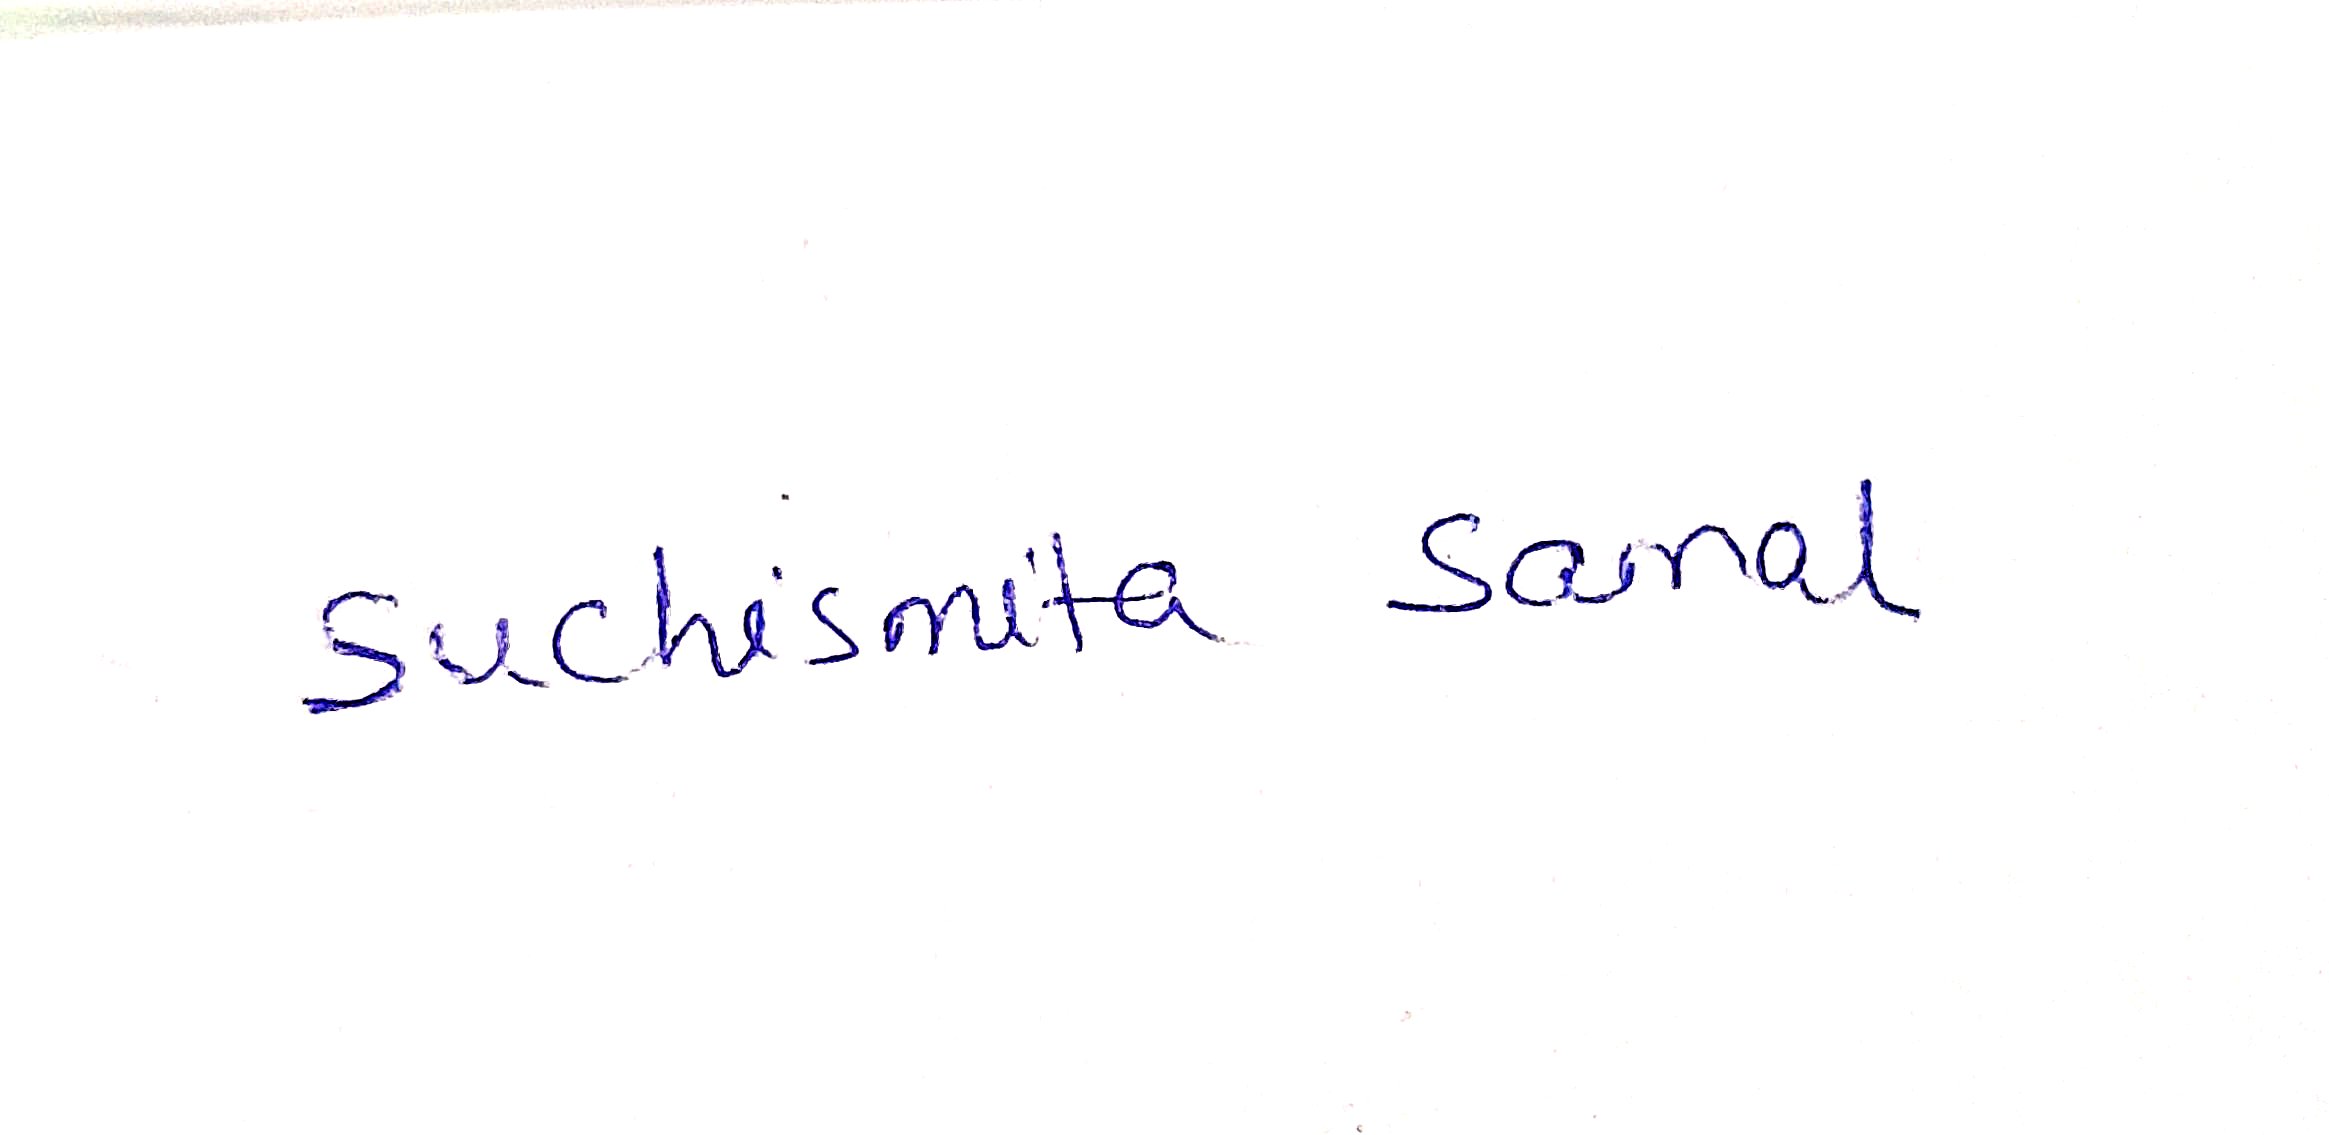 Suchismita Samal